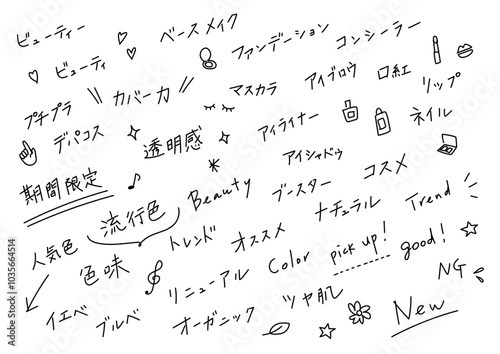 ビューティー
ベースメイク
ビューティ
ファンデーション
コンシーラー
プチプラ
カバー力
マスカラ
アイブロウ
口紅
リップ
デパコス
透明感
アイライナー
ネイル
期間限定
アイシャドゥ
コスメ
流行色
Beauty
ブースター
ナチュラル
Trend
人気色
色味
トレンド
オススメ
pick up!
good!
リニューアル
Color
NG
イエベ
ブルベ
オーガニック
ツヤ肌
New
Adobe Stock | #1035664514
Adobe Stock